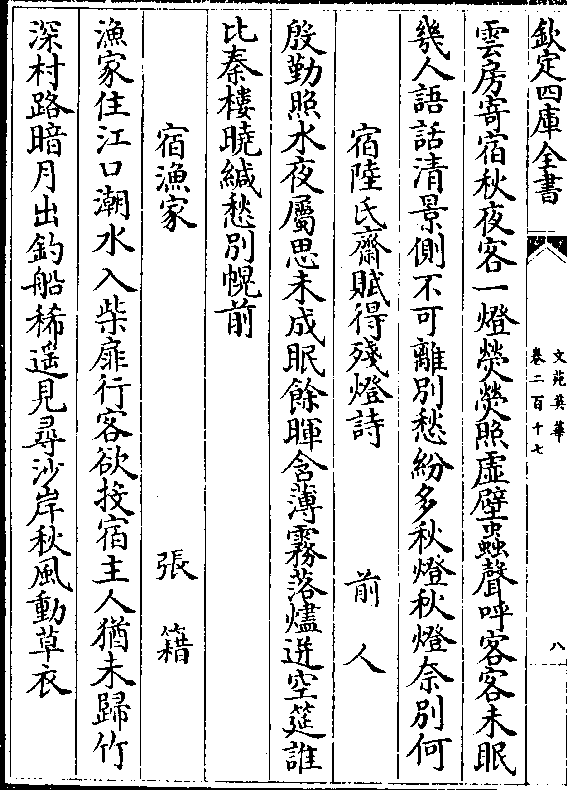 欽定四庫全書
文苑英華
卷二百十七
八
雲房寄宿秋夜客一燈熒熒照虛壁蟲聲呼客客未眠
幾人語話清景側不可離別愁紛多秋燈秋燈奈別何
宿陸氏齋賦得殘燈詩 前人
殷勤照水夜屬思未成眠餘暉含薄霧落燼迸空筵誰
比秦樓曉緘愁別幌前
宿漁家 張籍
漁家住江口潮水入柴扉行客欲投宿主人猶未歸竹
深村路暗月出釣船稀遥見尋沙岸秋風動草衣